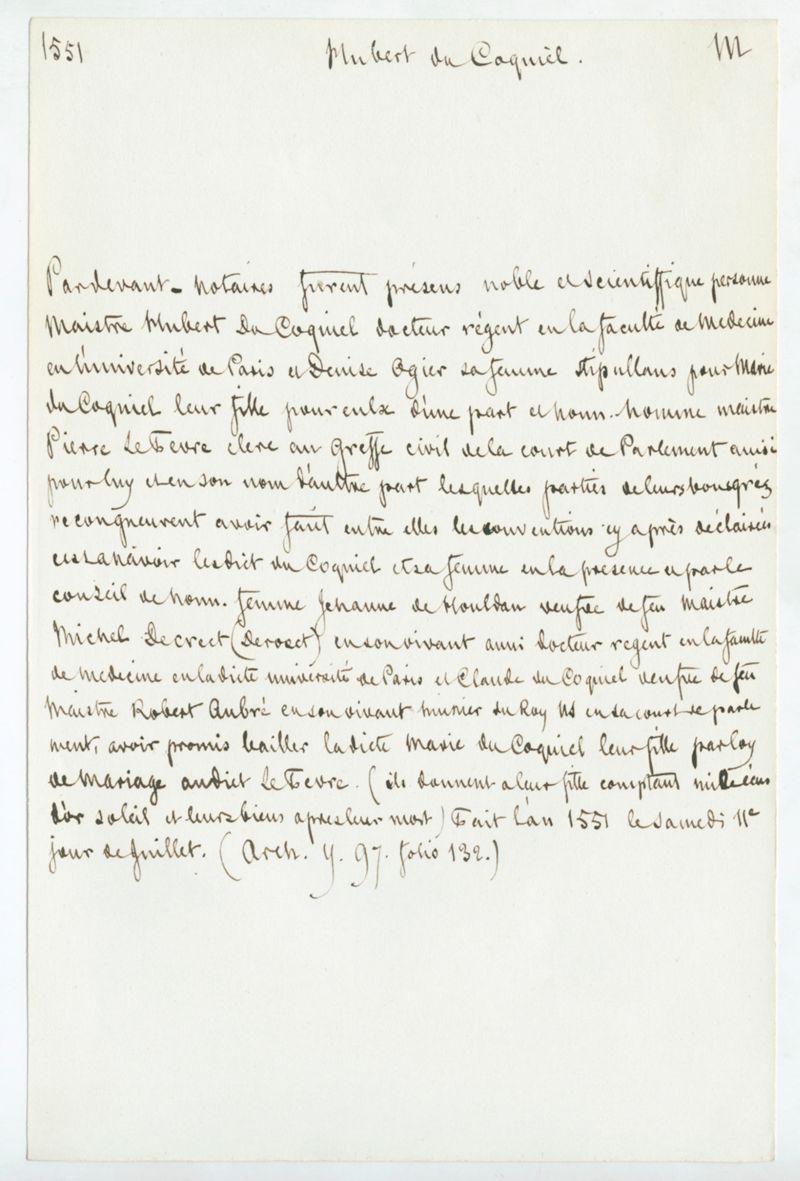 1551 Hubert du Coquiel. M
Pardevant - notaires furent présens noble et scientiffique personne
Maistre Hubert Du Coquiel docteur régent en la faculté de Medecine
en l'université de Paris et Denise Ogier sa femme stipullans pour Marie
du Coquiel leur fille pour eulx d'une part et honn. homme maistre
Pierre Le Fevre clerc au Greffe civil de la court de Parlement aussi
pour luy et en son nom d'aultre part lesquelles parties de leurs bons grés
recongneurent avoir faict entre elles les conventions cy après déclairées
c'est a savoir lesdict du Coquiel et sa femme en la presence et par le
conseil de honn. femme Jehanne de Houldan veufve de feu Maistre
Michel Decrect (Deroset) en son vivant aussi docteur regent en la faculté
de Medecine en la dicte université de Paris et Claude du Coquiel veufve de feu
Maistre Robert Aubré en son vivant du Roy NS en sa court de parle
ment, avoir promis bailler ladicte Marie du Coquiel leur fille par loy
de Mariage audict Le Fevre. (ils donnent a leur fille comptant mil écus
d'or soleil et leurs biens apres leur mort) Fait l'an 1551 le samedi 11e
jour de Juillet. (Arch. Y. 97. folio 132.)